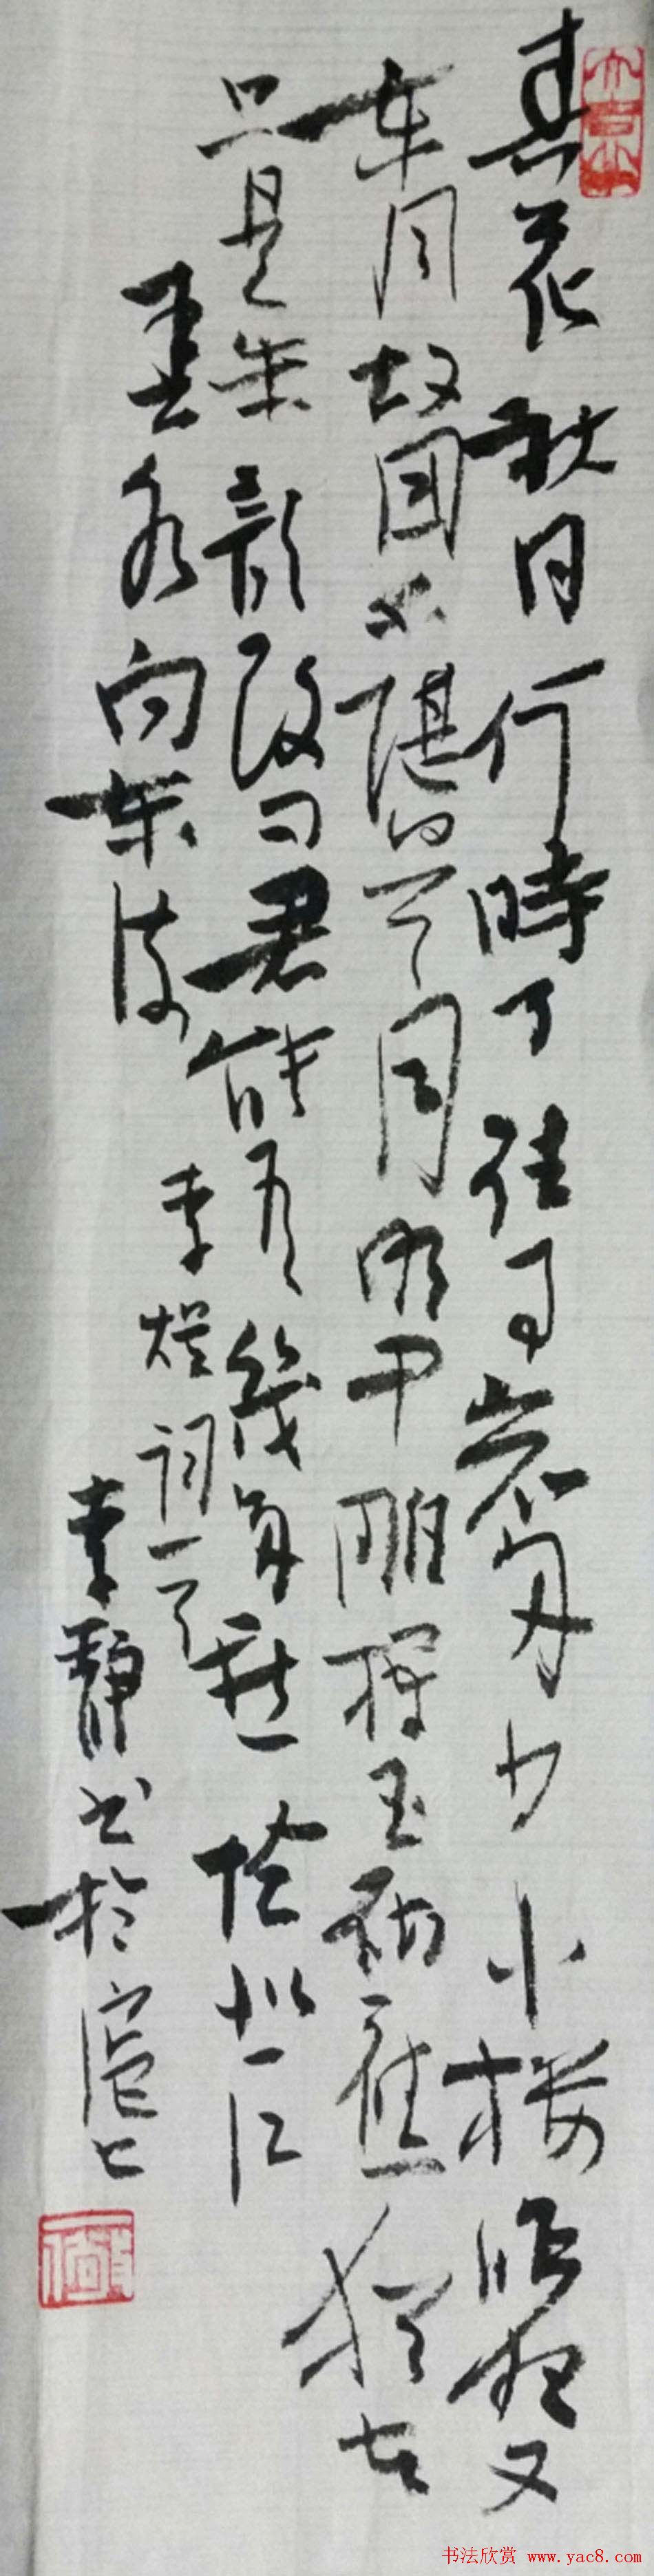 春花秋月何時了往事知多少小樓昨夜又
东風故國不堪回首月明中雕欄玉砌應猶在
只是朱顏改问君能有幾多愁恰似一江
春水向东流 李煜词一首
李靜书於滬上
书法欣赏 www.yac8.com